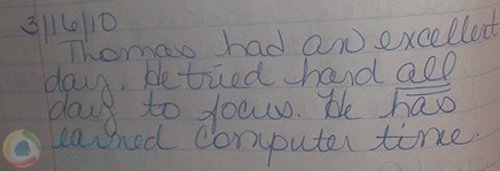 3/16/10
Thomas had an excellent
day. He tried hard all
day to focus. He has
earned computer time.